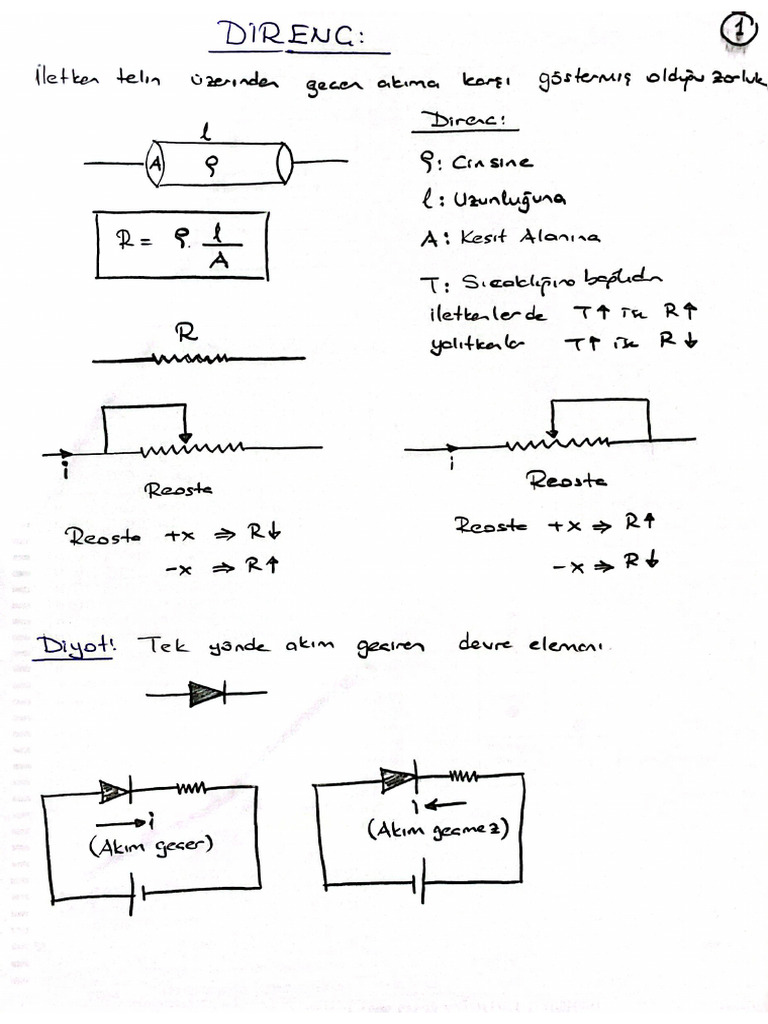 1
DİRENÇ:
İletken telin üzerinden geçen akıma karşı göstermiş olduğu zorluk
l
A ρ
R = ρ. l/A
R
Direnç:
ρ: Cinsine
l: Uzunluğuna
A: Kesit Alanına
T: Sıcaklığına bağlıdır
iletkenlerde T↑ ise R↑
yalıtkanlar T↑ ise R↓
i
Reosta
Reosta +x ⇒ R↓
-x ⇒ R↑
i
Reosta
Reosta +x ⇒ R↑
-x ⇒ R↓
Diyot: Tek yönde akım geçiren devre elemanı.
→ i
(Akım geçer)
i ←
(Akım geçmez)